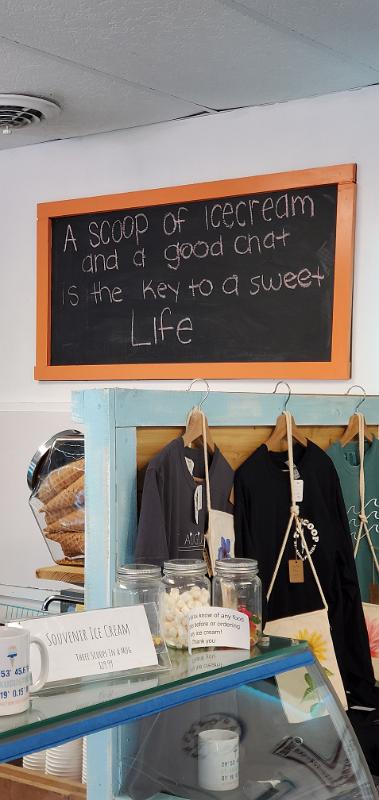 A scoop of Icecream
and a good chat
is the key to a sweet
Life
Souvenir Ice Cream
Three Scoops in a Mug
$19.99
know of any food
before or ordering
ice cream!
thank you